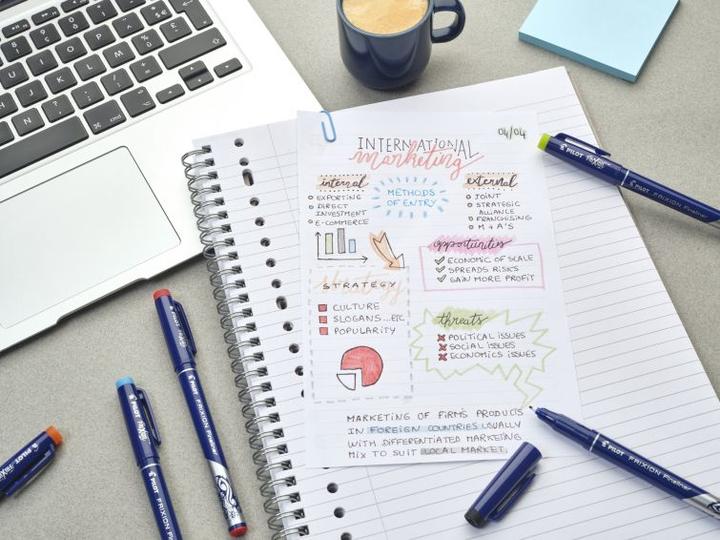 04/04
INTERNATIONAL
marketing
internal
EXPORTING
DIRECT
INVESTMENT
E-COMMERCE
METHODS
OF ENTRY
external
JOINT
STRATEGIC
ALLIANCE
FRANCHISING
M + A'S
opportunities
ECONOMIC OF SCALE
SPREADS RISKS
GAIN MORE PROFIT
STRATEGY
CULTURE
SLOGANS...ETC
POPULARITY
threats
POLITICAL ISSUES
SOCIAL ISSUES
ECONOMICS ISSUES
MARKETING OF FIRM'S PRODUCTS
IN FOREIGN COUNTRIES USUALLY
WITH DIFFERENTIATED MARKETING
MIX TO SUIT LOCAL MARKET.
PILOT FRIXION Fineliner
PILOT FRIXION Fineliner
PILOT FRIXION
PILOT FRIXION Fineliner
PILOT